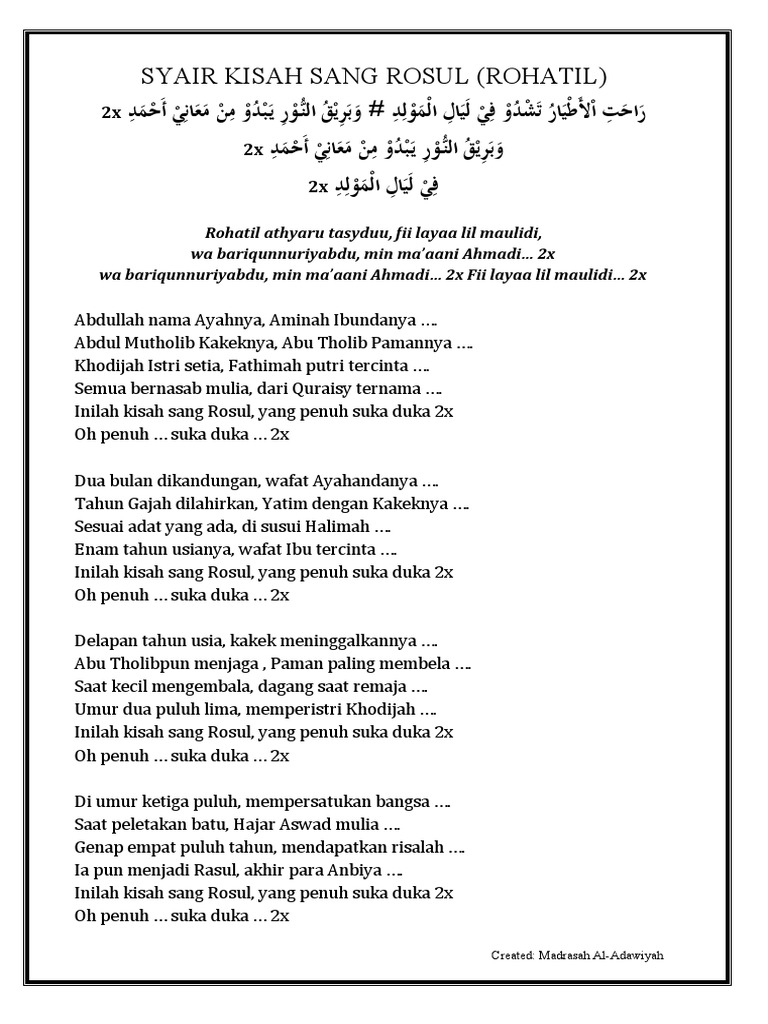 SYAIR KISAH SANG ROSUL (ROHATIL)
رَاحَتِ اْلأَطْيَارُ تَشْدُوْ فِيْ لَيَالِ الْمَوْلِدِ # وَبَرِيْقُ النُّوْرِ يَبْدُوْ مِنْ مَعَانِيْ أَحْمَدِ 2x
وَبَرِيْقُ النُّوْرِ يَبْدُوْ مِنْ مَعَانِيْ أَحْمَدِ 2x
فِيْ لَيَالِ الْمَوْلِدِ 2x
Rohatil athyaru tasyduu, fii layaa lil maulidi,
wa bariqunnuriyabdu, min ma’aani Ahmadi... 2x
wa bariqunnuriyabdu, min ma’aani Ahmadi... 2x Fii layaa lil maulidi... 2x
Abdullah nama Ayahnya, Aminah Ibundanya ....
Abdul Mutholib Kakeknya, Abu Tholib Pamannya ....
Khodijah Istri setia, Fathimah putri tercinta ....
Semua bernasab mulia, dari Quraisy ternama ....
Inilah kisah sang Rosul, yang penuh suka duka 2x
Oh penuh ... suka duka ... 2x
Dua bulan dikandungan, wafat Ayahandanya ....
Tahun Gajah dilahirkan, Yatim dengan Kakeknya ....
Sesuai adat yang ada, di susui Halimah ....
Enam tahun usianya, wafat Ibu tercinta ....
Inilah kisah sang Rosul, yang penuh suka duka 2x
Oh penuh ... suka duka ... 2x
Delapan tahun usia, kakek meninggalkannya ....
Abu Tholibpun menjaga , Paman paling membela ....
Saat kecil mengembala, dagang saat remaja ....
Umur dua puluh lima, memperistri Khodijah ....
Inilah kisah sang Rosul, yang penuh suka duka 2x
Oh penuh ... suka duka ... 2x
Di umur ketiga puluh, mempersatukan bangsa ....
Saat peletakan batu, Hajar Aswad mulia ....
Genap empat puluh tahun, mendapatkan risalah ....
Ia pun menjadi Rasul, akhir para Anbiya ....
Inilah kisah sang Rosul, yang penuh suka duka 2x
Oh penuh ... suka duka ... 2x
Created: Madrasah Al-Adawiyah